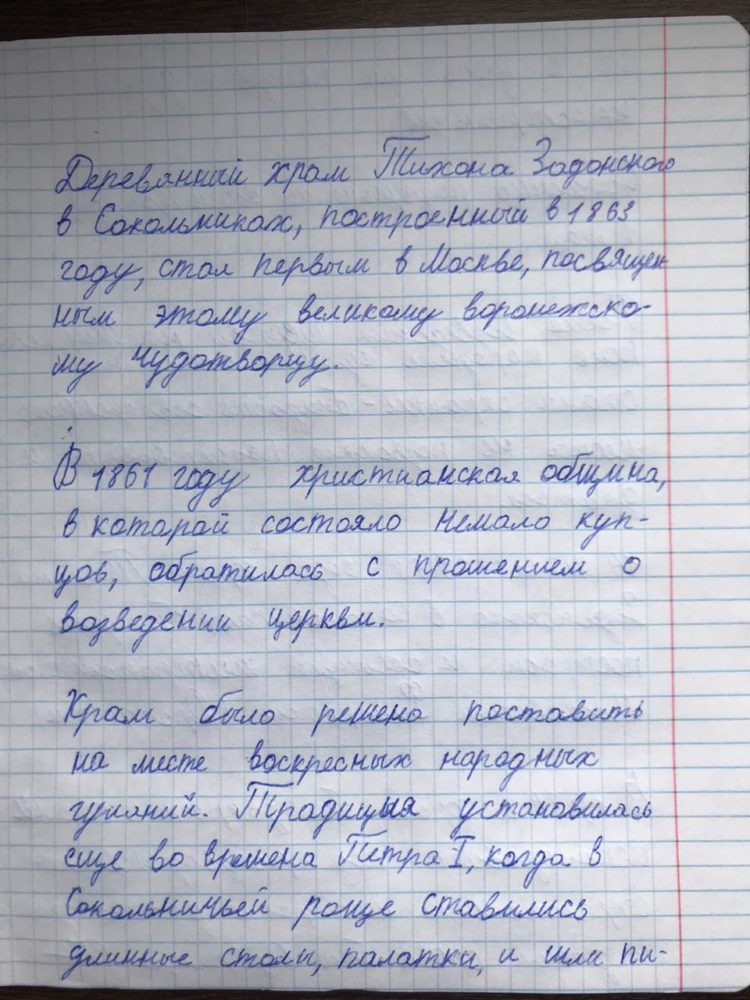 Деревянный храм Тихона Задонского
в Сокольниках, построенный в 1863
году, стал первым в Москве, посвящен
ным этому великому воронежско-
му чудотворцу.
В 1861 году христианская община,
в которой состояло немало куп-
цов, обратилась с прошением о
возведении церкви.
Храм было решено поставить
на месте воскресных народных
гуляний. Традиция установилась
еще во времена Петра I, когда в
Сокольничьей роще ставились
длинные столы, палатки, и шли пи-